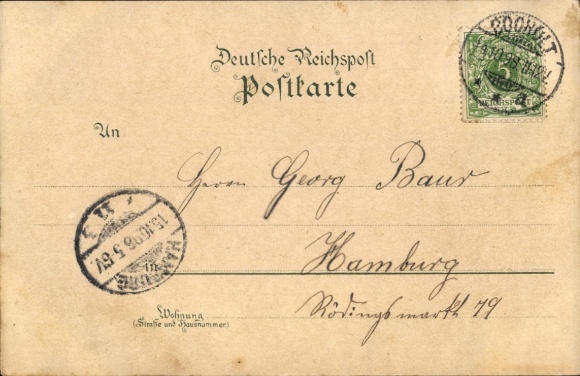 Deutsche Reichspost
Postkarte
BOCHOLT
5
REICHSPOST
An
Herrn Georg Baur
15.10.98.5-6V.
HAMBURG
Hamburg
Wohnung
(Straße und Hausnummer)
Rödingsmarkt 79